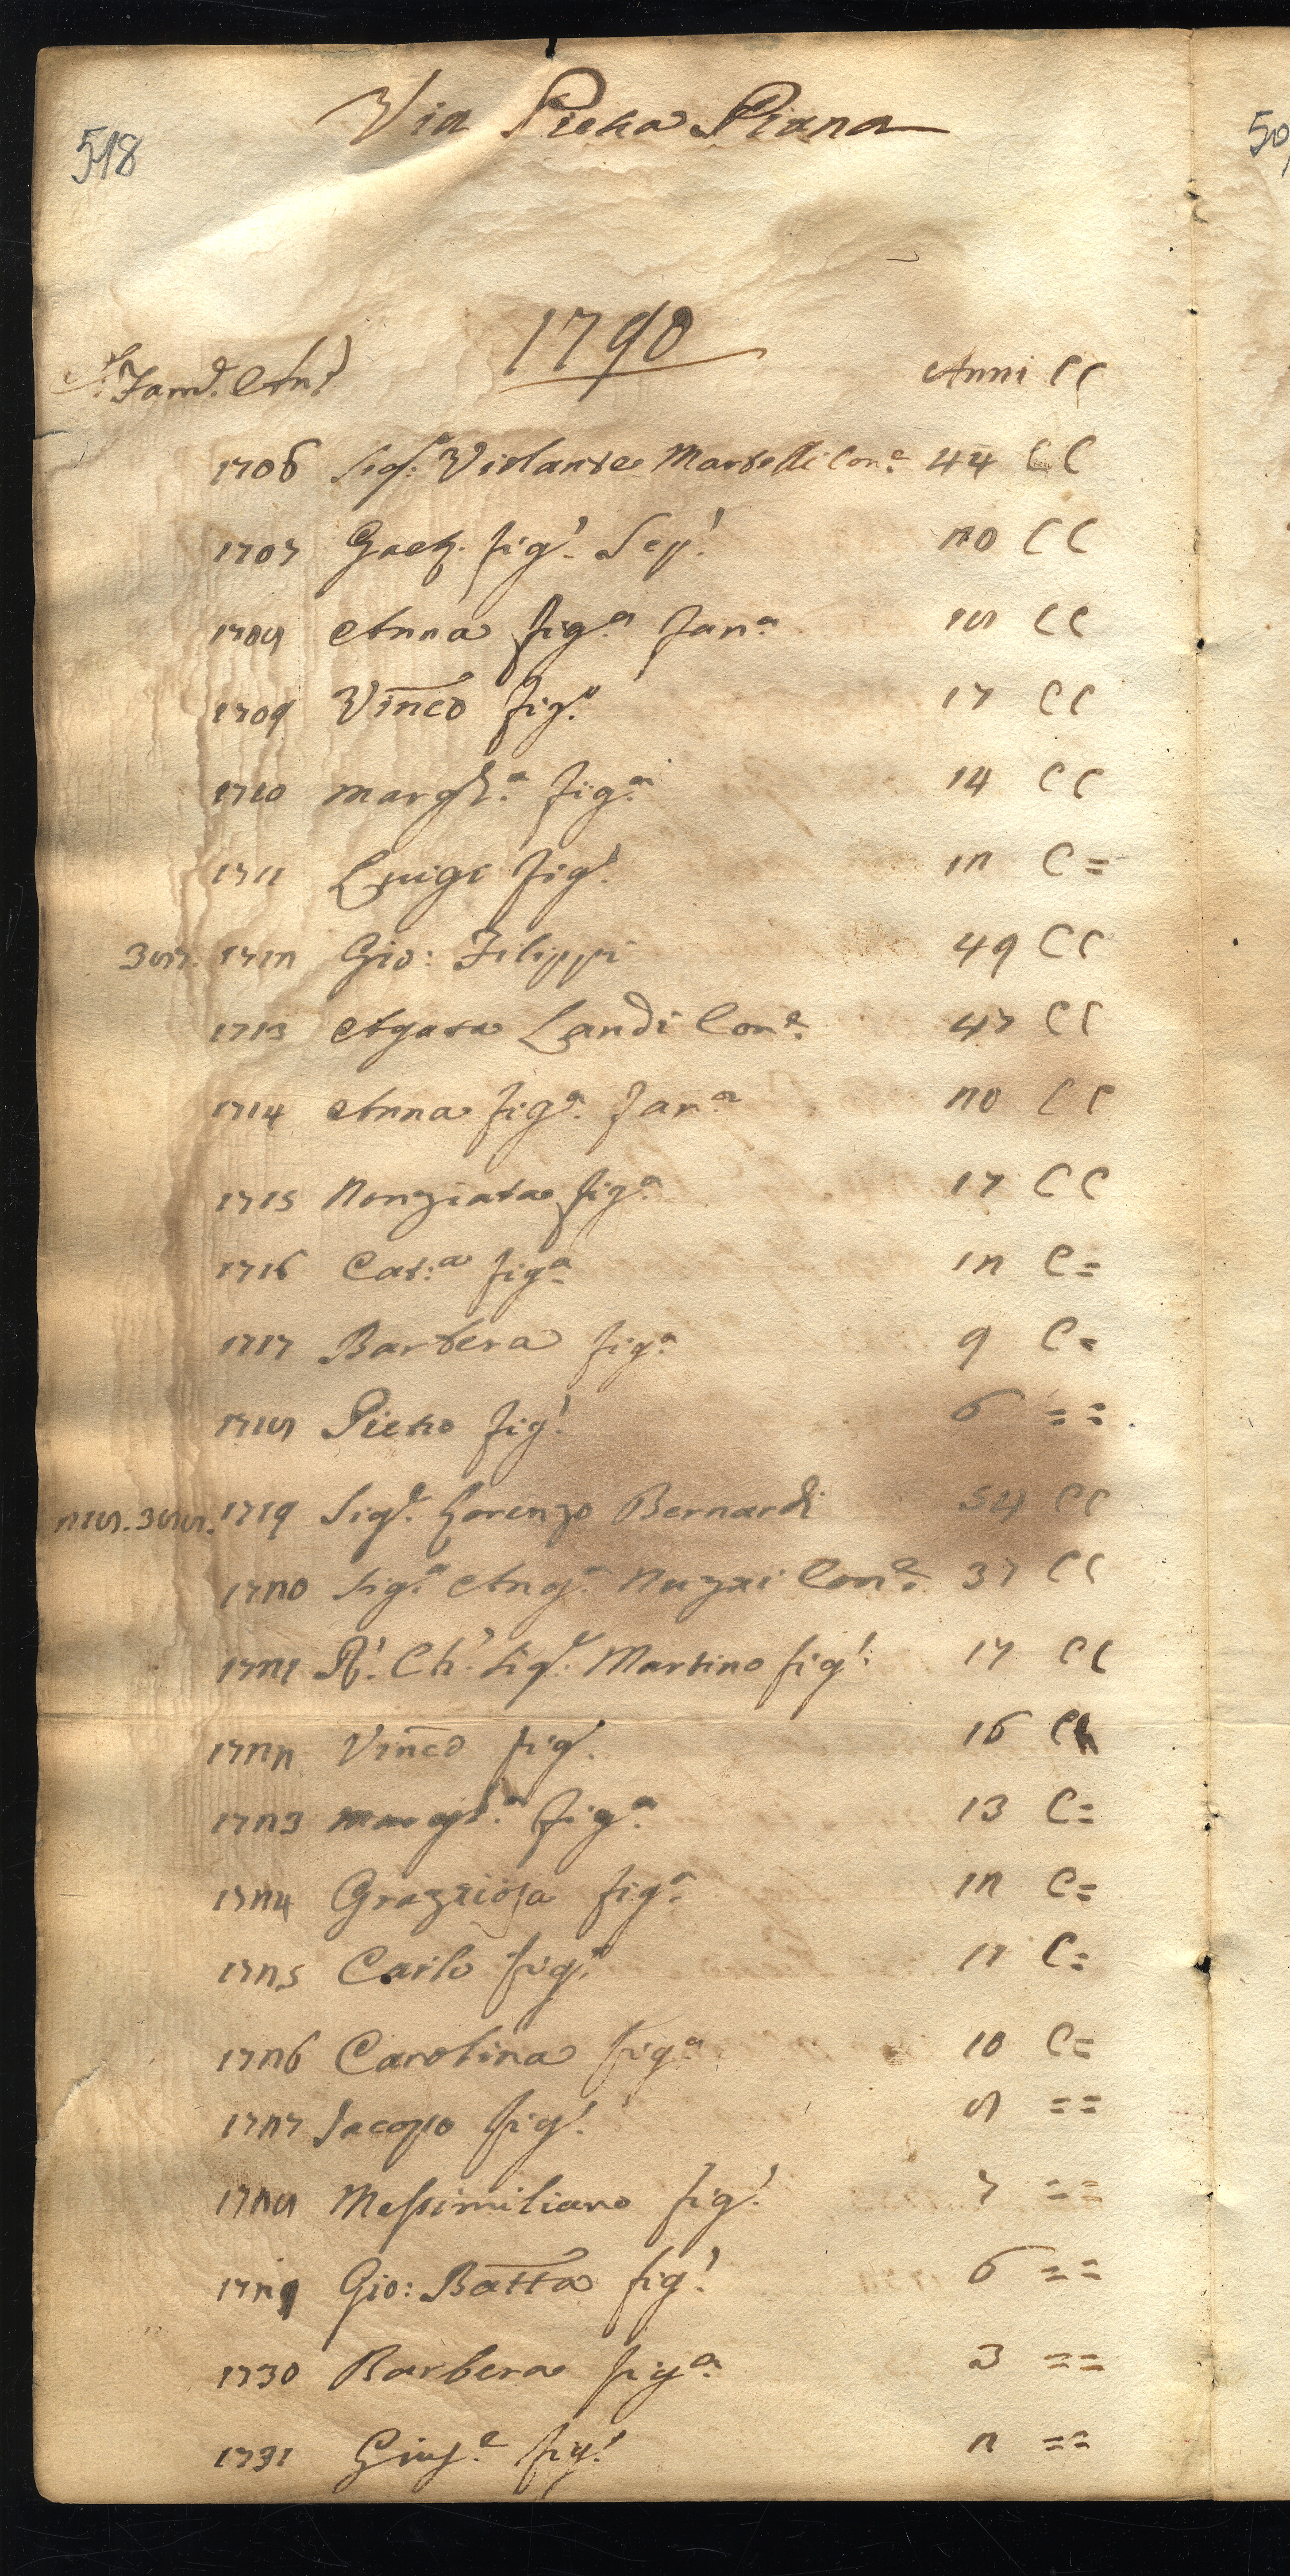 Via Pietra Piana
518
50
1790
Fam.e An.e Anni CC
1706 Sig.a Violante Martelli Con.e 44 CC
1707 Gaet. fig.o Sep.o 20 CC
1708 Anna fig.a Fan.a 18 CC
1709 Vinco fig.o 17 CC
1710 Margh.a fig.a 14 CC
1711 Luigi fig.o 12 C =
387. 1712 Gio: Filippi 49 CC
1713 Agata Landi Con.e 47 CC
1714 Anna fig.a Fan.a 20 CC
1715 Nonziata fig.a 17 CC
1716 Cat.a fig.a 12 C =
1717 Barbera fig.a 9 C =
1718 Pietro fig.o 6 = =
218. 388. 1719 Sig.r Lorenzo Bernardi 54 CC
1720 Sig.a Ang.a Nuzzi Con.e 37 CC
1721 R.o Ch.o Sig.r Martino fig.o 17 CC
1722 Vinco fig. 16 CC
1723 Margh.a fig.a 13 C =
1724 Grazziosa fig.a 12 C =
1725 Carlo fig.o 11 C =
1726 Carolina fig.a 10 C =
1727 Jacopo fig.o 8 = =
1728 Messimiliano fig.o 7 = =
1729 Gio: Batta fig.o 6 = =
1730 Barbera fig.a 3 = =
1731 Gius.e fig.o 2 = =